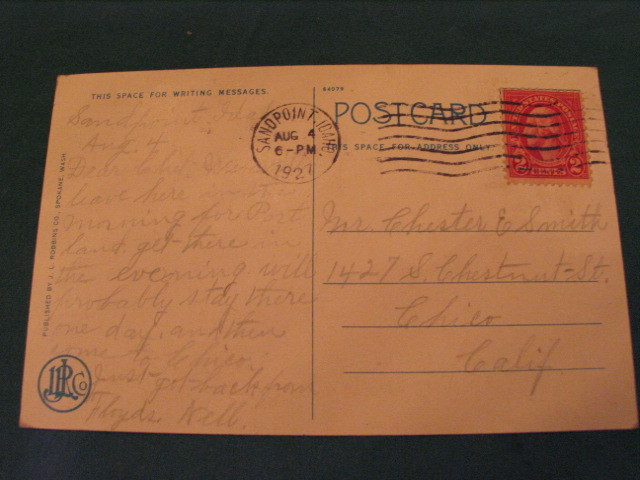 THIS SPACE FOR WRITING MESSAGES.
Sandpoint, Ida
Aug. 4
Dear
leave here in the
morning for Port
land. get there in
the evening. will
probably stay there
one day. and then
come to Chico.
Just got back from
Floyds. Nell.
PUBLISHED BY J. L. ROBBINS CO. SPOKANE, WASH.
JLR Co
64079
POSTCARD
THIS SPACE FOR ADDRESS ONLY.
SANDPOINT, IDAHO.
AUG 4
6-PM
1927
2 CENTS 2
Mr. Chester E Smith
1427 S. Chestnut St.
Chico
Calif.